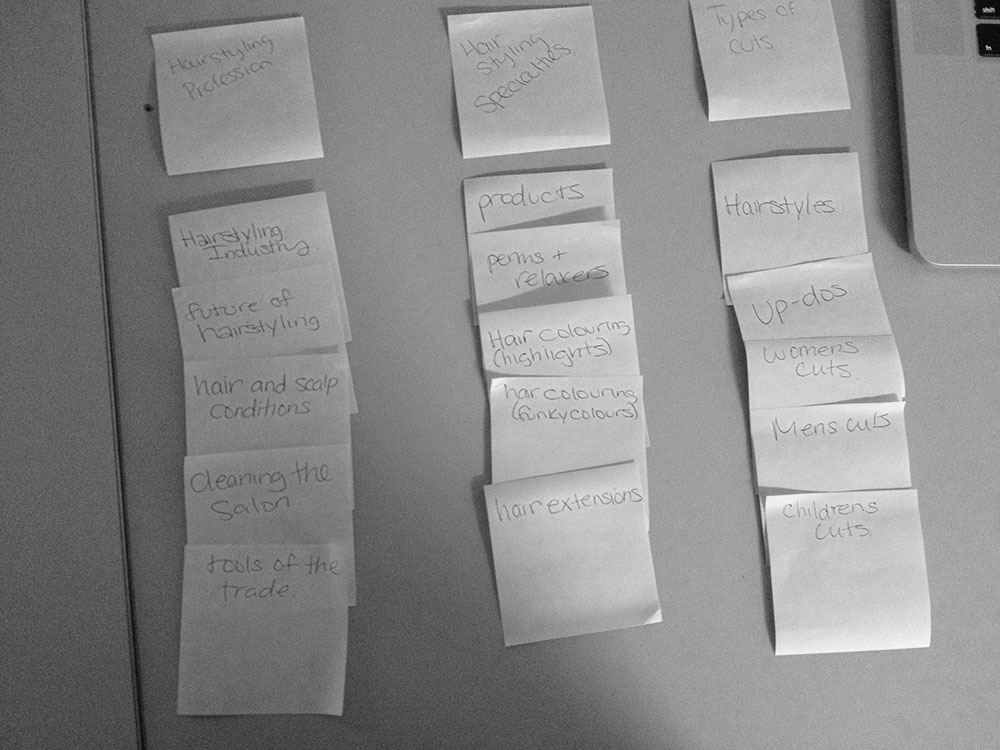 Hairstyling
Profession
Hairstyling
Industry.
future of
hairstyling
hair and scalp
conditions
Cleaning the
Salon
tools of the
trade.
Hair
Styling
Specialties
products
perms +
relaxers
Hair colouring
(highlights)
hair colouring
(funky colours)
hair extensions
Types of
cuts
Hairstyles
Up-dos.
Womens
cuts
Mens cuts
Childrens
cuts.
shift
fn